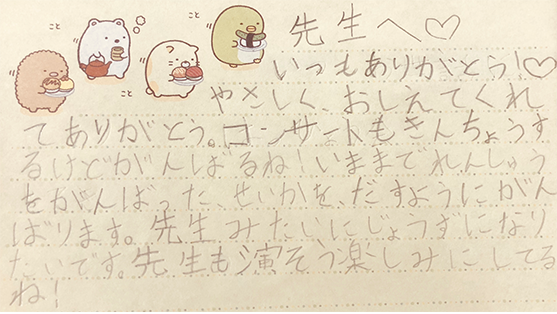 先生へ♡
いつもありがとう!♡
やさしく、おしえてくれ
てありがとう。コンサートもきんちょうす
るけどがんばるね!いままでれんしゅう
をがんばった、せいかを、だすようにがん
ばります。先生みたいにじょうずになり
たいです。先生も演そう楽しみにしてる
ね!
こと
こと
こと